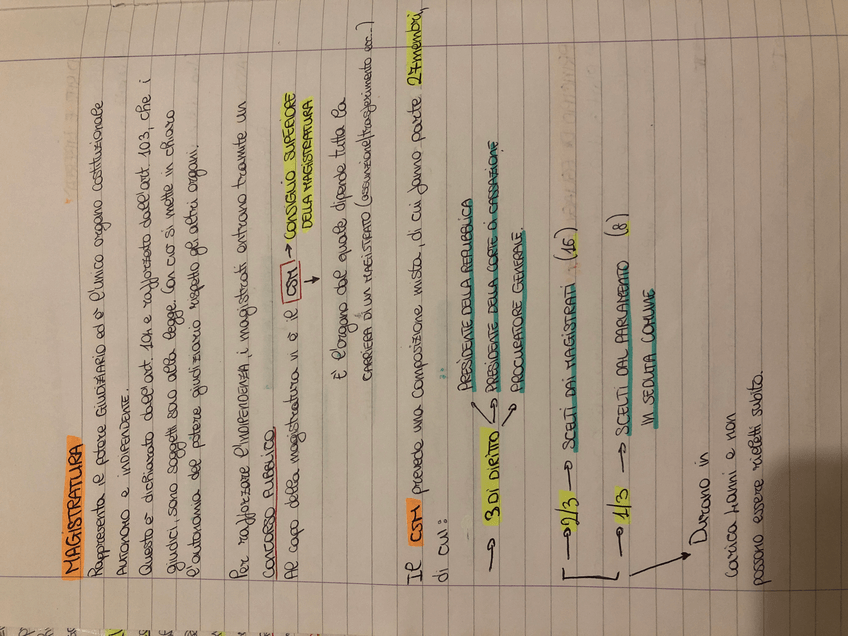 MAGISTRATURA
Rappresenta il potere GIUDIZIARIO ed è l'unico organo costituzionale
AUTONOMO e INDIPENDENTE.
Questo è dichiarato dall'art. 104 e rafforzato dall'art. 103, che i
giudici, sono soggetti solo alla legge. Con ciò si mette in chiaro
l'autonomia del potere giudiziario rispetto gli altri organi.
Per rafforzare l'INDIPENDENZA, i magistrati entrano tramite un
CONCORSO PUBBLICO
Al capo della magistratura vi è il CSM → CONSIGLIO SUPERIORE
DELLA MAGISTRATURA
È l'organo dal quale dipende tutta la
CARRIERA DI UN MAGISTRATO (assunzione/trasferimento ecc..)
Il CSM prevede una composizione mista, di cui fanno parte 27 membri,
di cui:
PRESIDENTE DELLA REPUBBLICA
→ 3 DI DIRITTO → PRESIDENTE DELLA CORTE DI CASSAZIONE
PROCURATORE GENERALE.
→ 2/3 → SCELTI DAI MAGISTRATI (16)
→ 1/3 → SCELTI DAL PARLAMENTO (8)
IN SEDUTA COMUNE
Durano in
carica 4 anni e non
possono essere rieletti subito.